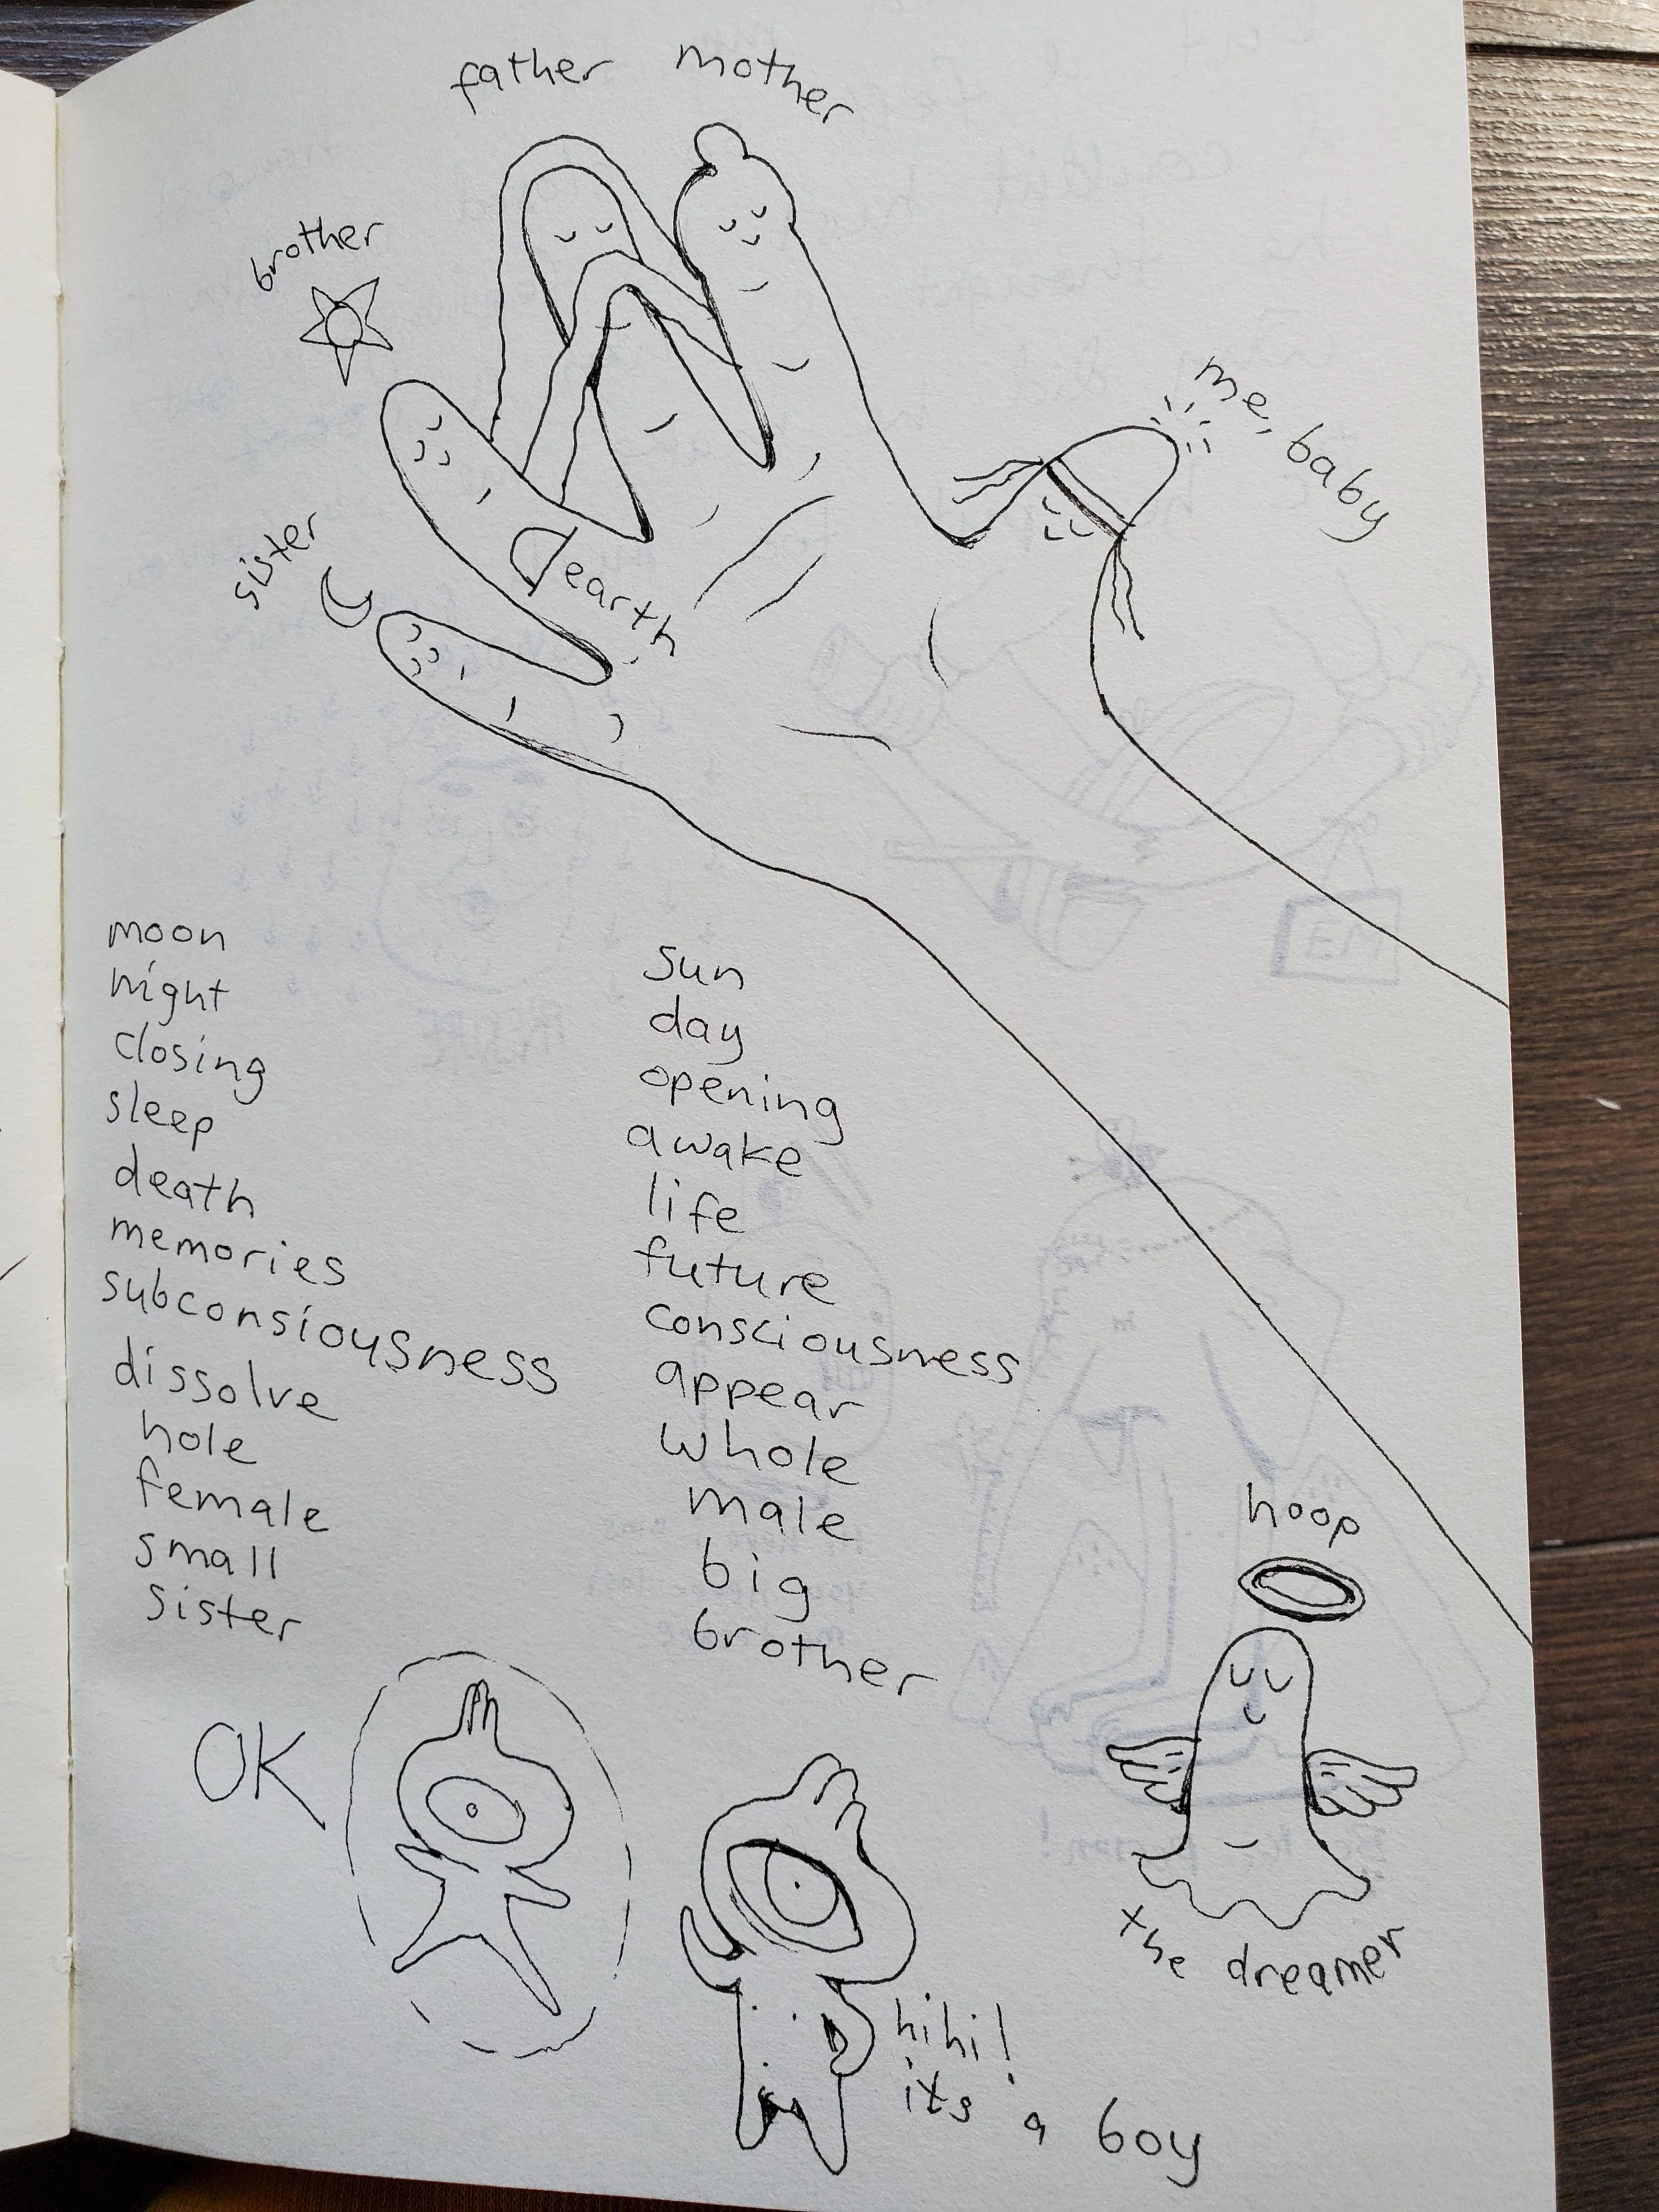 father mother
brother
me, baby
sister
earth
moon
night
closing
sleep
death
memories
subconsiousness
dissolve
hole
female
small
sister
sun
day
opening
awake
life
future
consciousness
appear
whole
male
big
brother
hoop
the dreamer
OK
hihi!
its a boy